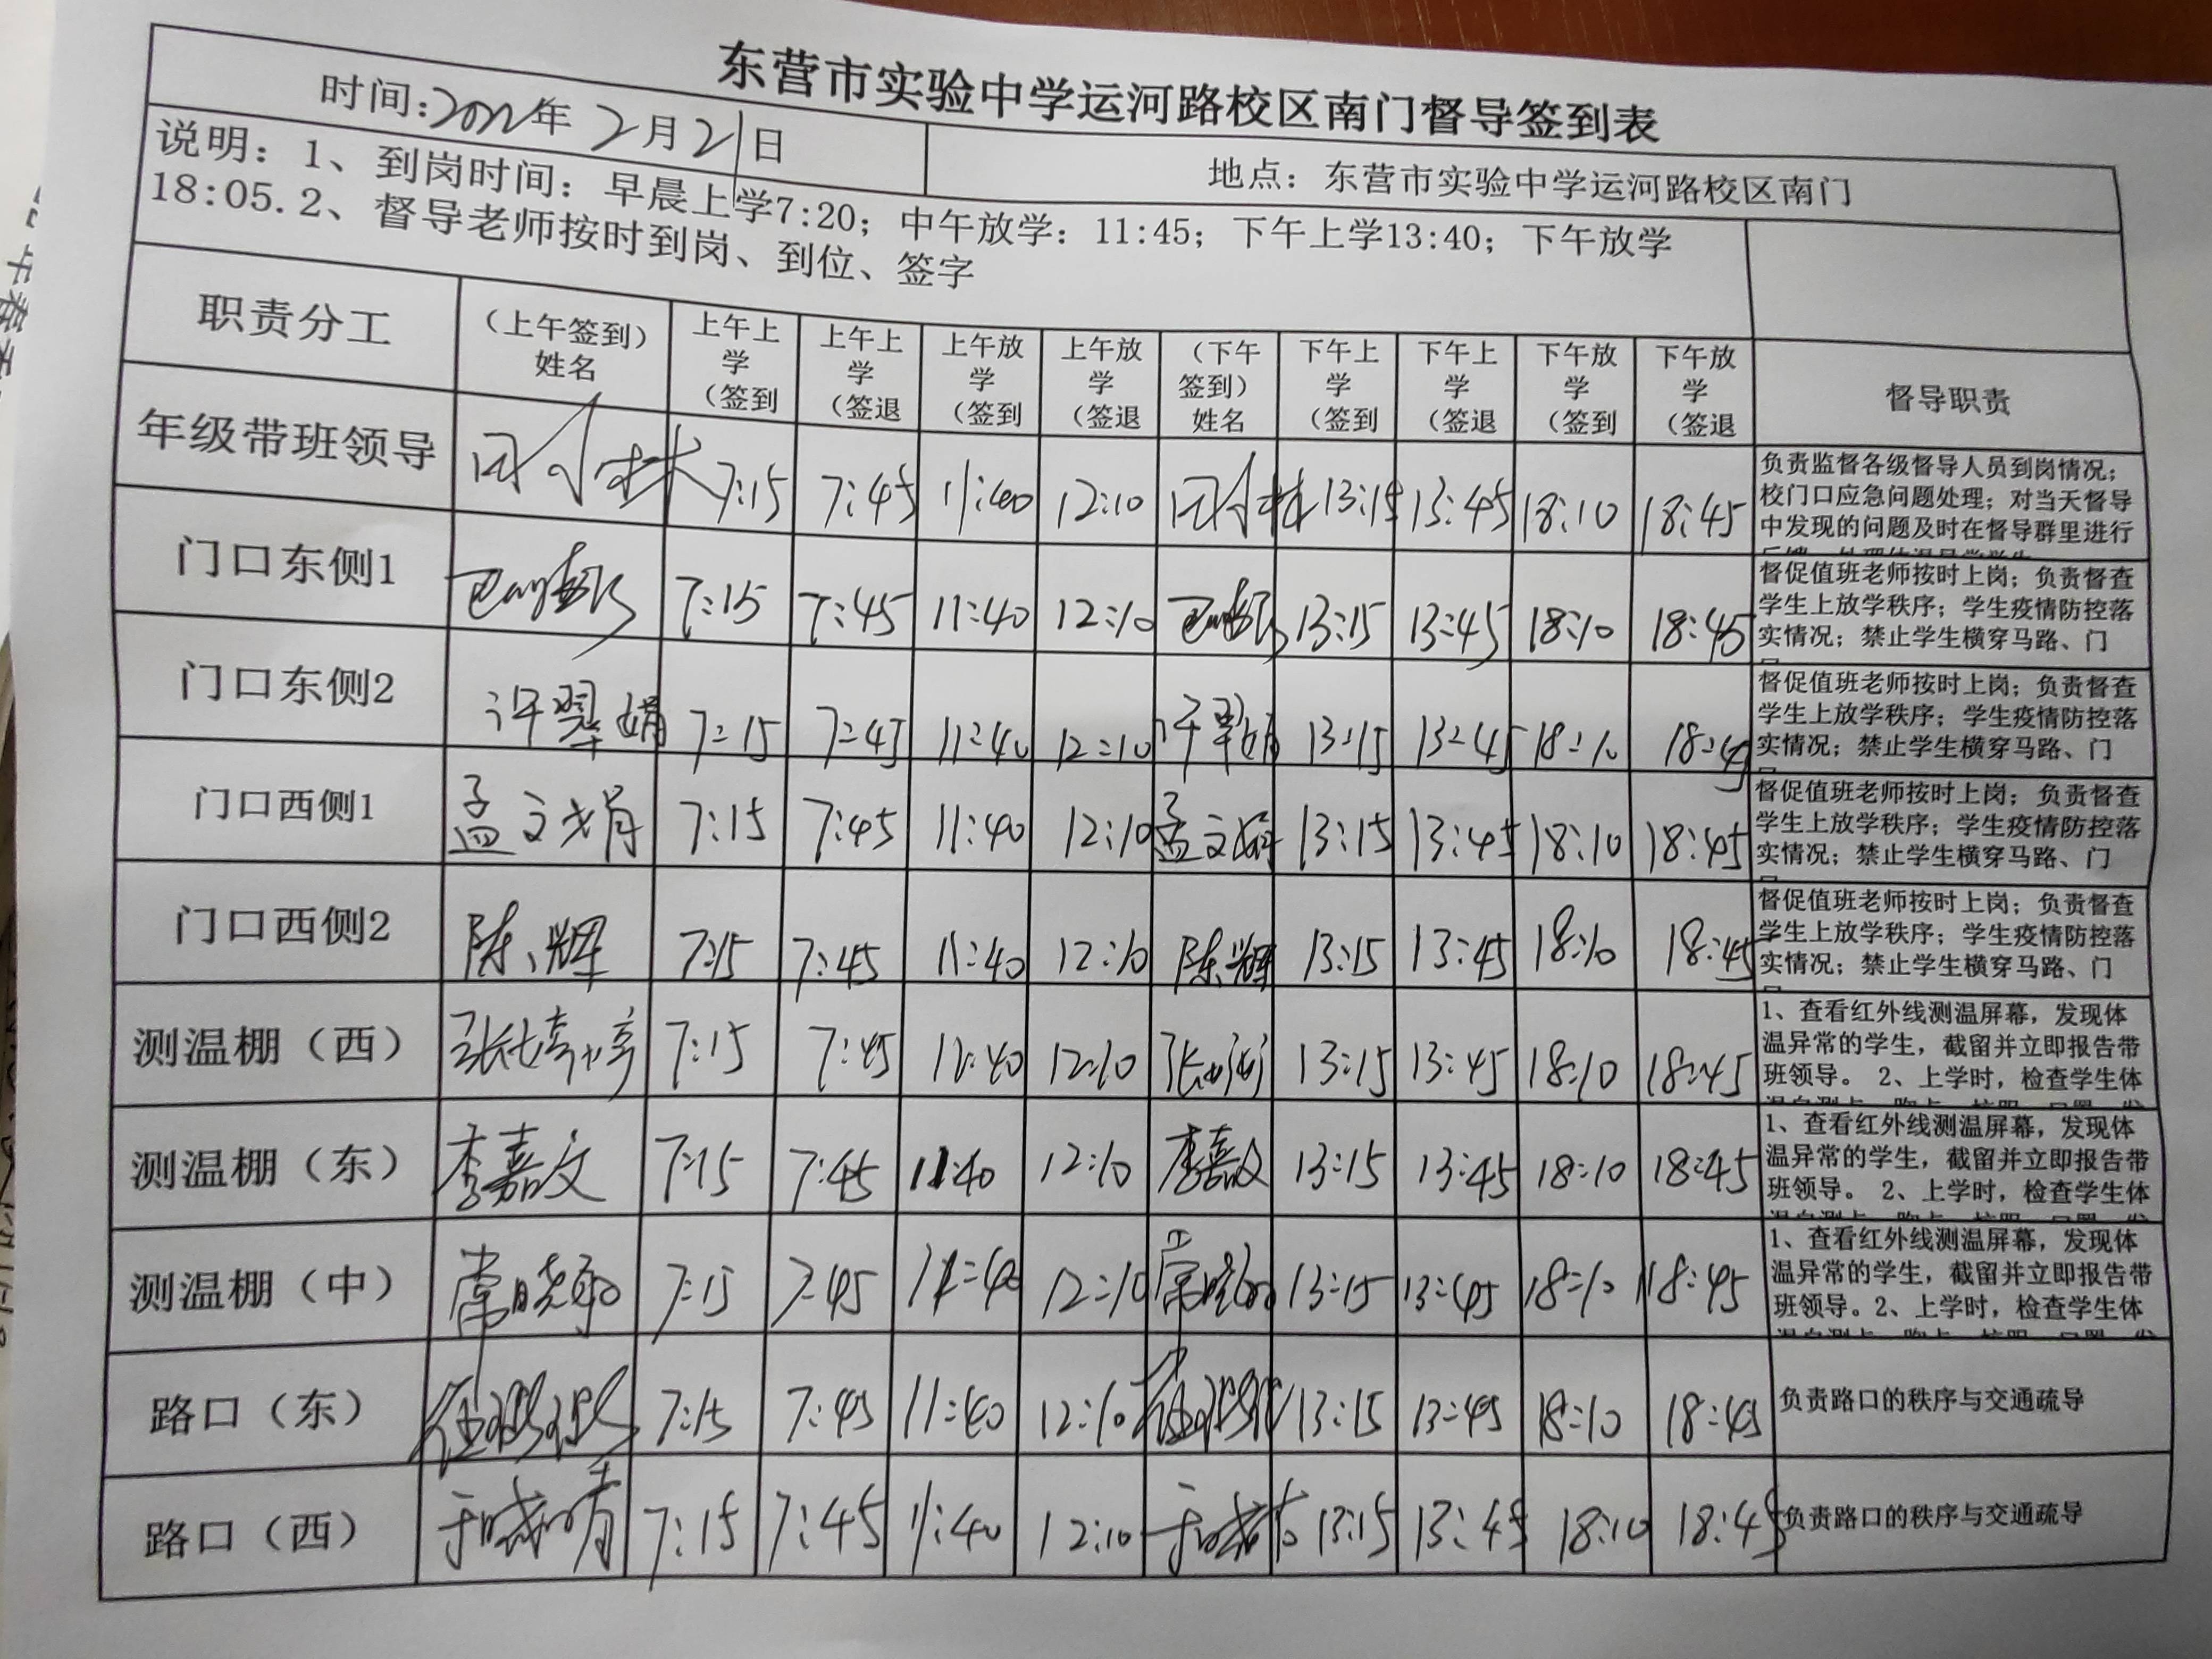 东营市实验中学运河路校区南门督导签到表
时间:2022年 2月21日 地点：东营市实验中学运河路校区南门
说明：1、到岗时间：早晨上学7:20；中午放学：11:45；下午上学13:40；下午放学
18:05.2、督导老师按时到岗、到位、签字
职责分工 （上午签到）姓名 上午上学（签到 上午上学（签退 上午放学（签到 上午放学（签退 （下午签到）姓名 下午上学（签到 下午上学（签退 下午放学（签到 下午放学（签退 督导职责
年级带班领导 7:15 7:45 11:40 12:10 13:15 13:45 18:10 18:45
负责监督各级督导人员到岗情况；
校门口应急问题处理；对当天督导
中发现的问题及时在督导群里进行
门口东侧1 7:15 7:45 11:40 12:10 13:15 13:45 18:10 18:45
督促值班老师按时上岗；负责督查
学生上放学秩序；学生疫情防控落
实情况；禁止学生横穿马路、门
门口东侧2 许翠娟 7:15 7:45 11:40 12:10 许翠娟 13:15 13:45 18:10 18:45
督促值班老师按时上岗；负责督查
学生上放学秩序；学生疫情防控落
实情况；禁止学生横穿马路、门
门口西侧1 孟文娟 7:15 7:45 11:40 12:10 孟文娟 13:15 13:45 18:10 18:45
督促值班老师按时上岗；负责督查
学生上放学秩序；学生疫情防控落
实情况；禁止学生横穿马路、门
门口西侧2 陈辉 7:15 7:45 11:40 12:10 陈辉 13:15 13:45 18:10 18:45
督促值班老师按时上岗；负责督查
学生上放学秩序；学生疫情防控落
实情况；禁止学生横穿马路、门
测温棚（西） 张婷婷 7:15 7:45 11:40 12:10 13:15 13:45 18:10 18:45
1、查看红外线测温屏幕，发现体
温异常的学生，截留并立即报告带
班领导。 2、上学时，检查学生体
测温棚（东） 李嘉文 7:15 7:45 11:40 12:10 李嘉文 13:15 13:45 18:10 18:45
1、查看红外线测温屏幕，发现体
温异常的学生，截留并立即报告带
班领导。 2、上学时，检查学生体
测温棚（中） 7:15 7:45 11:40 12:10 13:15 13:45 18:10 18:45
1、查看红外线测温屏幕，发现体
温异常的学生，截留并立即报告带
班领导。2、上学时，检查学生体
路口（东） 7:15 7:45 11:40 12:10 13:15 13:45 18:10 18:45 负责路口的秩序与交通疏导
路口（西） 于晓晴 7:15 7:45 11:40 12:10 13:15 13:45 18:10 18:45 负责路口的秩序与交通疏导